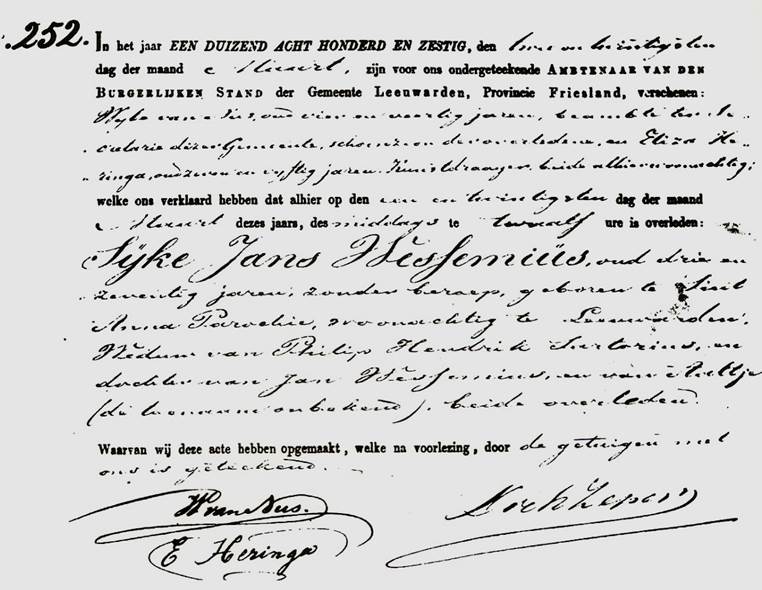 252. In het jaar EEN DUIZEND ACHT HONDERD EN ZESTIG, den twee en twintigsten
dag der maand Maart, zijn voor ons ondergeteekende AMBTENAAR VAN DEN
BURGERLIJKEN STAND der Gemeente Leeuwarden, Provincie Friesland, verschenen:
Wybe van Nus, oud vier en veertig jaren, beambte ter Se-
cretarie dezer Gemeente, schoonzoon der overledene, en Eliza He-
ringa, oud zeven en vyftig jaren, beide alhier woonachtig;
welke ons verklaard hebben dat alhier op den een en twintigsten dag der maand
Maart dezes jaars, des middags te twaalf ure is overleden:
Sÿke Jans Wessemiüs, oud drie en
zeventig jaren, zonder beroep, geboren te Sint
Anna Parochie, woonachtig te Leeuwarden,
Weduw van Philip Hendrik Sartorius, en
dochter van Jan Wessemius, en van
(de toenaam onbekend), beide overleden.
Waarvan wij deze acte hebben opgemaakt, welke na voorlezing, door de getuigen met
ons is geteekend.
W van Nus.
E Heringa